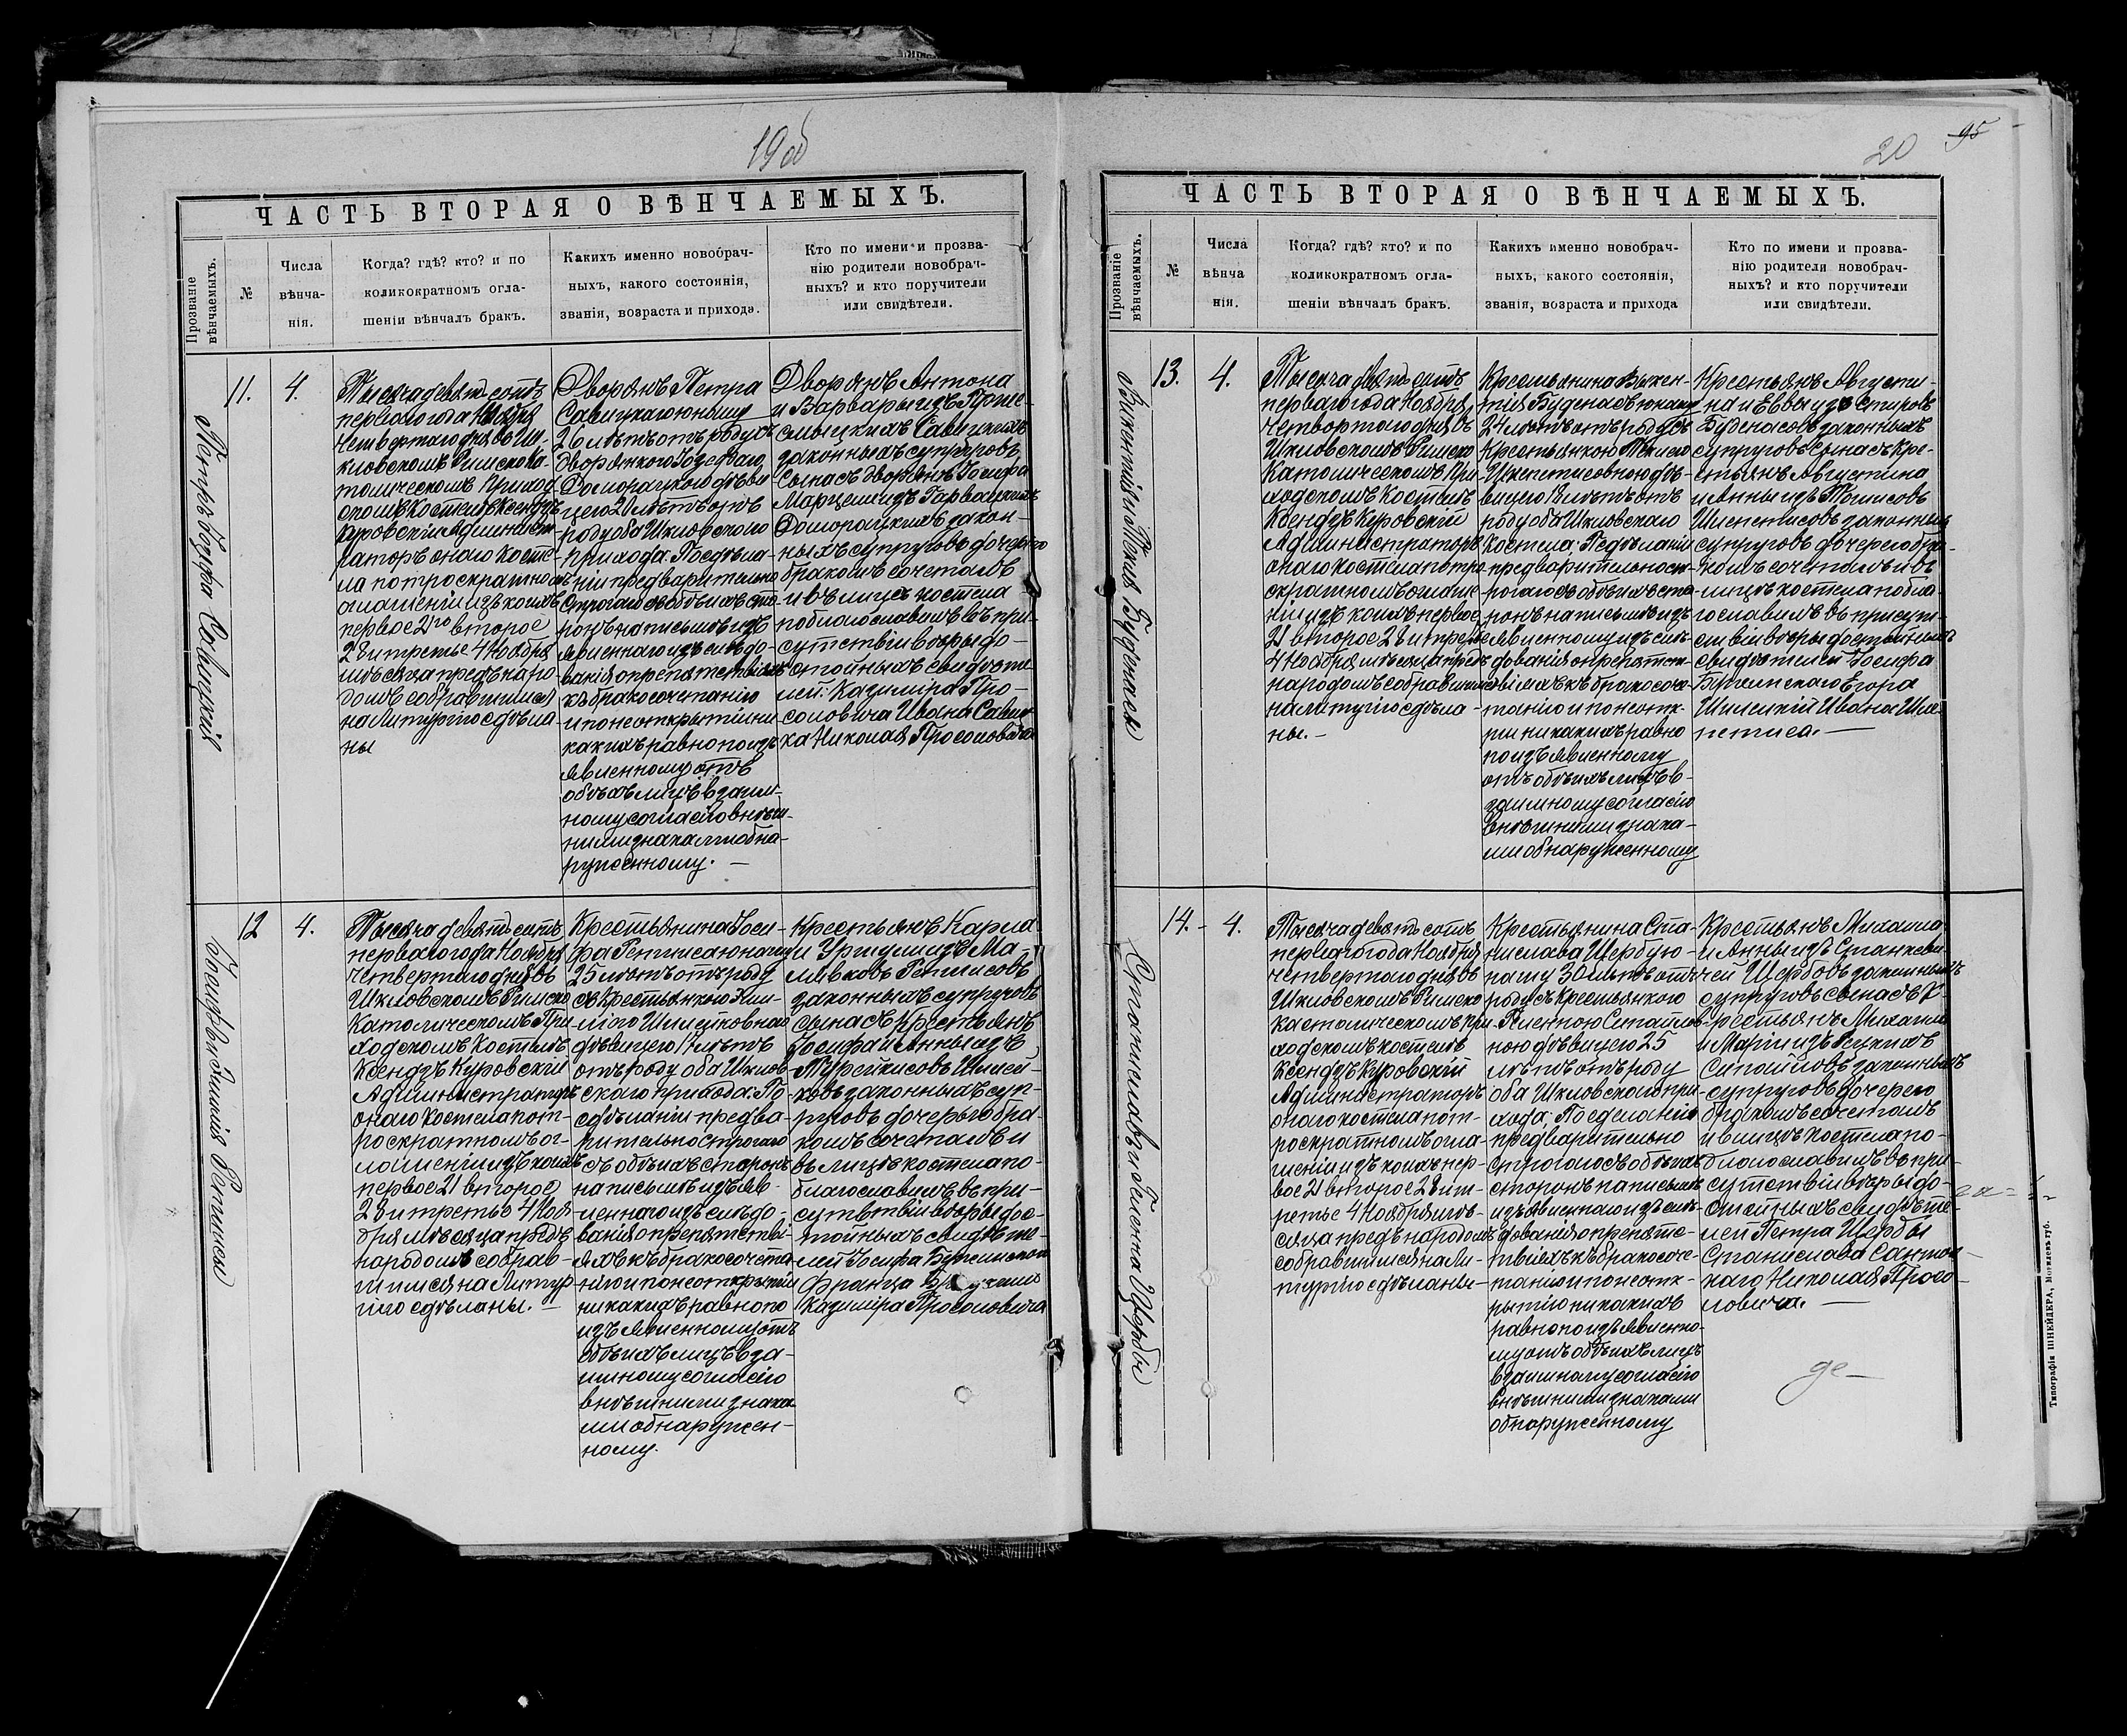 19об
ЧАСТЬ ВТОРАЯ О ВѢНЧАЕМЫХЪ.
Прозваніе вѣнчаемыхъ.
№
Числа вѣнча-
нія.
Когда? гдѣ? кто? и по
коликократномъ огла-
шеніи вѣнчалъ бракъ.
Какихъ именно новобрач-
ныхъ, какого состоянія,
званія, возраста и прихода.
Кто по имени и прозва-
нію родители новобрач-
ныхъ? и кто поручители
или свидѣтели.
Петръ Юзефа Савицкіе
11.
4.
Тысяча девятьсотъ
перваго года Ноября
Четвертаго дня въ Ш-
кловскомъ Римско Ка-
толическомъ Приход-
скомъ Костелѣ Ксендзъ
Куровскій Админист-
раторъ онаго Косте-
ла по троекратномъ
оглашеніи изъ коихъ
первое 21го второе
28 и третье 4 Ноября
мѣсяца предъ наро-
домъ собравшимся
на Литургію сдѣла-
ны
Дворянъ Петра
Савицкаго юношу
26 лѣтъ отъ роду съ
дворянкою Юзефою
Доморацкою дѣви-
цею 20 лѣтъ отъ
роду оба Шкловскаго
прихода. По сдѣла-
ніи предварительно
строгаго съ обѣихъ сто-
ронъ на письмѣ изъ
явленнаго изслѣдо-
ванія о препятствіяхъ
къ бракосочетанію
и по неоткрытіи ни
какихъ равно по изъ
явленному отъ
обѣихъ лицъ взаим-
ному согласію внѣш-
ними знаками обна-
руженному. —
Дворянъ Антона
и Варвары изъ
Савицкихъ
законныхъ супруговъ
сына съ дворянъ Іосифа
Марцели изъ
Доморацкихъ закон-
ныхъ супруговъ дочерью
бракомъ сочеталъ
и въ лицѣ костела
поблагословилъ въ при-
сутствіи вѣры до-
стойныхъ свидѣте-
лей: Казиміра Про-
соловича Ивана Савиц-
ка Николая Просоловича
Іосифъ Эмилія Репписы
12
4.
Тысяча девятьсотъ
перваго года Ноября
Четвертаго дня въ
Шкловскомъ Римско
Католическомъ При-
ходскомъ Костелѣ
Ксендзъ Куровскій
Администраторъ
онаго Костела по т-
роекратномъ ог-
лашеніи изъ коихъ
первое 21 второе
28 и третье 4 Ноя-
бря мѣсяца предъ
народомъ собрав-
шимся на Литур-
гію сдѣланы. —
Крестьянина Іоси-
фа Репписа юношу
25 лѣтъ отъ роду
съ Крестьянкою Эми-
ліею
дѣвицею 17 лѣтъ
отъ роду оба Шклов-
скаго прихода. По
сдѣланіи предва-
рительно строгаго
съ обѣихъ сторонъ
на письмѣ изъяв-
леннаго изслѣдо-
ванія о препятстві-
яхъ къ бракосочета-
нію и по неоткрытіи
никакихъ равно по
изъявленному отъ
обѣихъ лицъ вза-
имному согласію
внѣшними знака-
ми обнаружен-
ному.
Крестьянъ Карла
и Уршули изъ Ма-
Репписовъ
законныхъ супруговъ
сына съ Крестьянъ
Іосифа и Анны изъ

законныхъ суп-
руговъ дочерью бра-
комъ сочеталъ и
въ лицѣ костела по-
благословилъ въ при-
сутствіи вѣры дос-
тойныхъ свидѣте-
лей Іосифа
Франца
Казиміра Просоловича
20
95
ЧАСТЬ ВТОРАЯ О ВѢНЧАЕМЫХЪ.
Прозваніе вѣнчаемыхъ.
№
Числа вѣнча
нія.
Когда? гдѣ? кто? и по
коликократномъ огла-
шеніи вѣнчалъ бракъ.
Какихъ именно новобрач-
ныхъ, какого состоянія,
званія, возраста и прихода
Кто по имени и прозва-
нію родители новобрач-
ныхъ? и кто поручители
или свидѣтели.
Викентій и Текля Буденасы
13.
4.
Тысяча девятьсотъ
перваго года Ноября
Четвертаго дня въ
Шкловскомъ Римско
Католическомъ При-
ходскомъ Костелѣ
Ксендзъ Куровскій
Администраторъ
онаго костела по тро-
екратномъ оглаше-
ніи изъ коихъ первое
21 второе 28 и третье
4 Ноября мѣсяца предъ
народомъ собравшимся
на литургію сдѣла-
ны. —
Крестьянина Викен-
тія Буденаса юношу
24 лѣтъ отъ роду съ
Крестьянкою Теклею
дѣ-
вицею 18 лѣтъ отъ
роду оба Шкловскаго
костела: По сдѣланіи
предварительно ст-
рогаго съ обѣихъ сто-
ронъ на письмѣ изъ
явленному изслѣ-
дованія о препятст-
віяхъ къ бракосоче-
танію и по неотк-
рыти никакихъ равно
по изъявленному
отъ обѣихъ лицъ в-
заимному согласію
внѣшними знака-
ми обнаруженному
Крестьянъ Августи-
на и Евы изъ
Буденасовъ законныхъ
супруговъ сына съ Кре-
стьянъ Августина
и Анны изъ
законныхъ
супруговъ дочерью бра-
комъ сочеталъ и въ
лицѣ костела побла-
гословилъ въ присутс-
твіи вѣры достойныхъ
свидѣтелей Іосифа
Егора
Ивана
—
Станиславъ и Геленна Щербы
14. -
4.
Тысяча девятьсотъ
перваго года Ноября
четвертаго дня въ
Шкловскомъ Римско
Католическомъ При-
ходскомъ костелѣ
Ксендзъ Куровскій
Администраторъ
онаго костела по т-
роекратномъ огла-
шеніи изъ коихъ пер-
вое 21 второе 28 и т-
ретье 4 Ноября мѣ-
сяца предъ народомъ
собравшимся на Ли-
тургію сдѣланы —
Крестьянина Ста-
нислава Щербу ю-
ношу 30 лѣтъ отъ
роду съ Крестьянкою
Геленною
дѣвицею 25
лѣтъ отъ роду
оба Шкловскаго при-
хода; По сдѣланіи
предварительно
строгаго съ обѣихъ
сторонъ на письмѣ
изъявленнаго изслѣ-
дованія о препятс-
твіяхъ къ бракосоче-
танію и по неотк-
рытію никакихъ
равно по изъявленно-
му отъ обѣихъ лицъ
взаимному согласію
внѣшними знаками
обнаруженному
Крестьянъ Михаила
и Анны изъ Станкеви-
чей Щербовъ законныхъ
супруговъ сына съ К-
рестьянъ Михаила
и Маріи изъ
законныхъ
супруговъ дочерею
бракомъ сочеталъ
и в лицѣ костела по-
благословилъ въ при-
сутствіи вѣры до-
стойныхъ свидѣте-
лей Петра Щербы
Станислава
Николая Просо-
ловича. —
Типографія ШНЕЙДЕРА, Могилевъ губ.